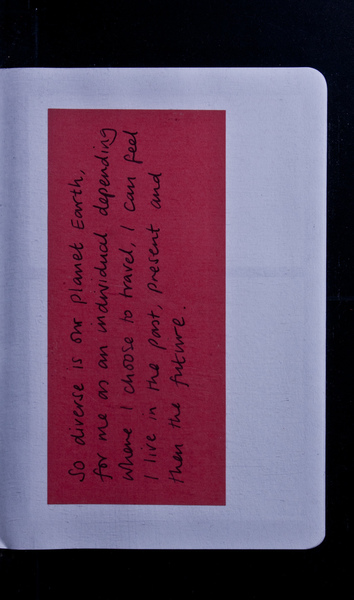 So diverse is our planet Earth,
for me as an individual depending
where I choose to travel, I can feel
I live in the past, present and
then the future.